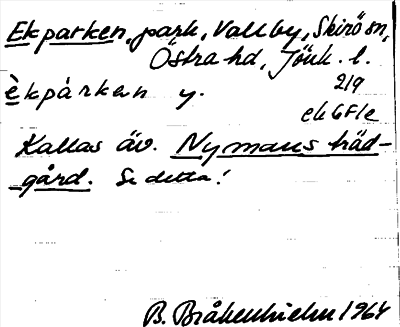 Ekparken, park, Vallby, Skirö sn,
Östra hd, Jönk. l.
èkpàrkan y. 2/9
ek 6F1e
Kallas äv. Nymans träd-
gård. Se detta!
B. Bråkenhielm 1964